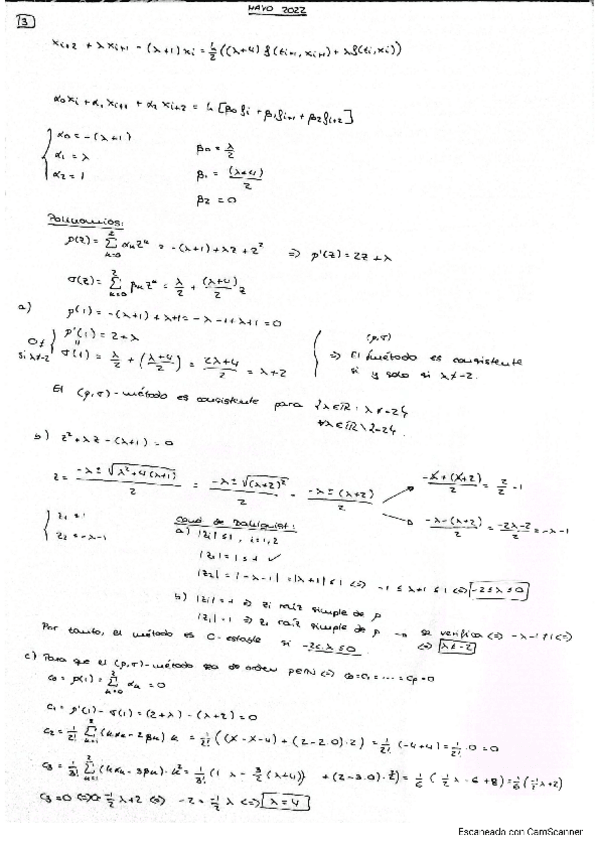 MAYO 2022
3
x_{i+2} + λx_{i+1} - (λ+1)x_i = h/2 ((λ+4) f(t_{i+1}, x_{i+1}) + λf(t_i, x_i))
α_0x_i + α_1x_{i+1} + α_2x_{i+2} = h [β_0f_i + β_1f_{i+1} + β_2f_{i+2}]
α_0 = -(λ+1)
α_1 = λ
α_2 = 1
β_0 = λ/2
β_1 = (λ+4)/2
β_2 = 0
Polinomios:
ρ(z) = Σ_{k=0}^{2} α_k z^k = -(λ+1) + λz + z² ⇒ ρ'(z) = 2z + λ
σ(z) = Σ_{k=0}^{2} β_k z^k = λ/2 + (λ+4)/2 z
a) ρ(1) = -(λ+1) + λ+1 = -λ-1+λ+1 = 0
ρ'(1) = 2+λ
0≠ si λ≠-2 σ(1) = λ/2 + (λ+4)/2 = (2λ+4)/2 = λ+2
(ρ,σ)
⇒ El método es consistente
si y solo si λ≠-2.
El (ρ,σ)-método es consistente para {λ∈ℝ: λ≠-2}
∀λ∈ℝ\{-2}.
b) z² + λz - (λ+1) = 0
z = (-λ ± √(λ²+4(λ+1)))/2 = (-λ ± √((λ+2)²))/2 = (-λ ± (λ+2))/2
(-λ+(λ+2))/2 = 2/2 = 1
(-λ-(λ+2))/2 = (-2λ-2)/2 = -λ-1
z_1 = 1
z_2 = -λ-1
Cond de Dahlquist:
a) |z_i| ≤ 1, i=1,2
|z_1| = 1 ≤ 1 ✓
|z_2| = |-λ-1| = |λ+1| ≤ 1 ⇔ -1 ≤ λ+1 ≤ 1 ⇔ -2≤λ≤0
b) |z_i| = 1 ⇒ z_i raíz simple de ρ
|z_1| = 1 ⇒ z_1 raíz simple de ρ → se verifica ⇔ -λ-1≠1 ⇔
⇔ λ≠-2
Por tanto, el método es C-estable si -2<λ≤0.
c) Para que el (ρ,σ)-método sea de orden p∈ℕ ⇔ c_0=c_1=...=c_p=0
c_0 = ρ(1) = Σ_{k=0}^{2} α_k = 0
c_1 = ρ'(1) - σ(1) = (2+λ) - (λ+2) = 0
c_2 = 1/2! Σ_{k=1}^{2} (kα_k - 2β_k) k = 1/2! ((λ-λ-4) + (2-2·0)·2) = 1/2! (-4+4) = 1/2! · 0 = 0
c_3 = 1/3! Σ_{k=1}^{2} (kα_k - 3β_k) · k² = 1/3! (1 λ - 3/2 (λ+4)) + (2-3·0)·2²) = 1/6 (-1/2 λ - 6 + 8) = 1/6 (-1/2 λ + 2)
c_3 = 0 ⇔ -1/2 λ + 2 ⇔ -2 = -1/2 λ ⇔ λ = 4
Escaneado con CamScanner